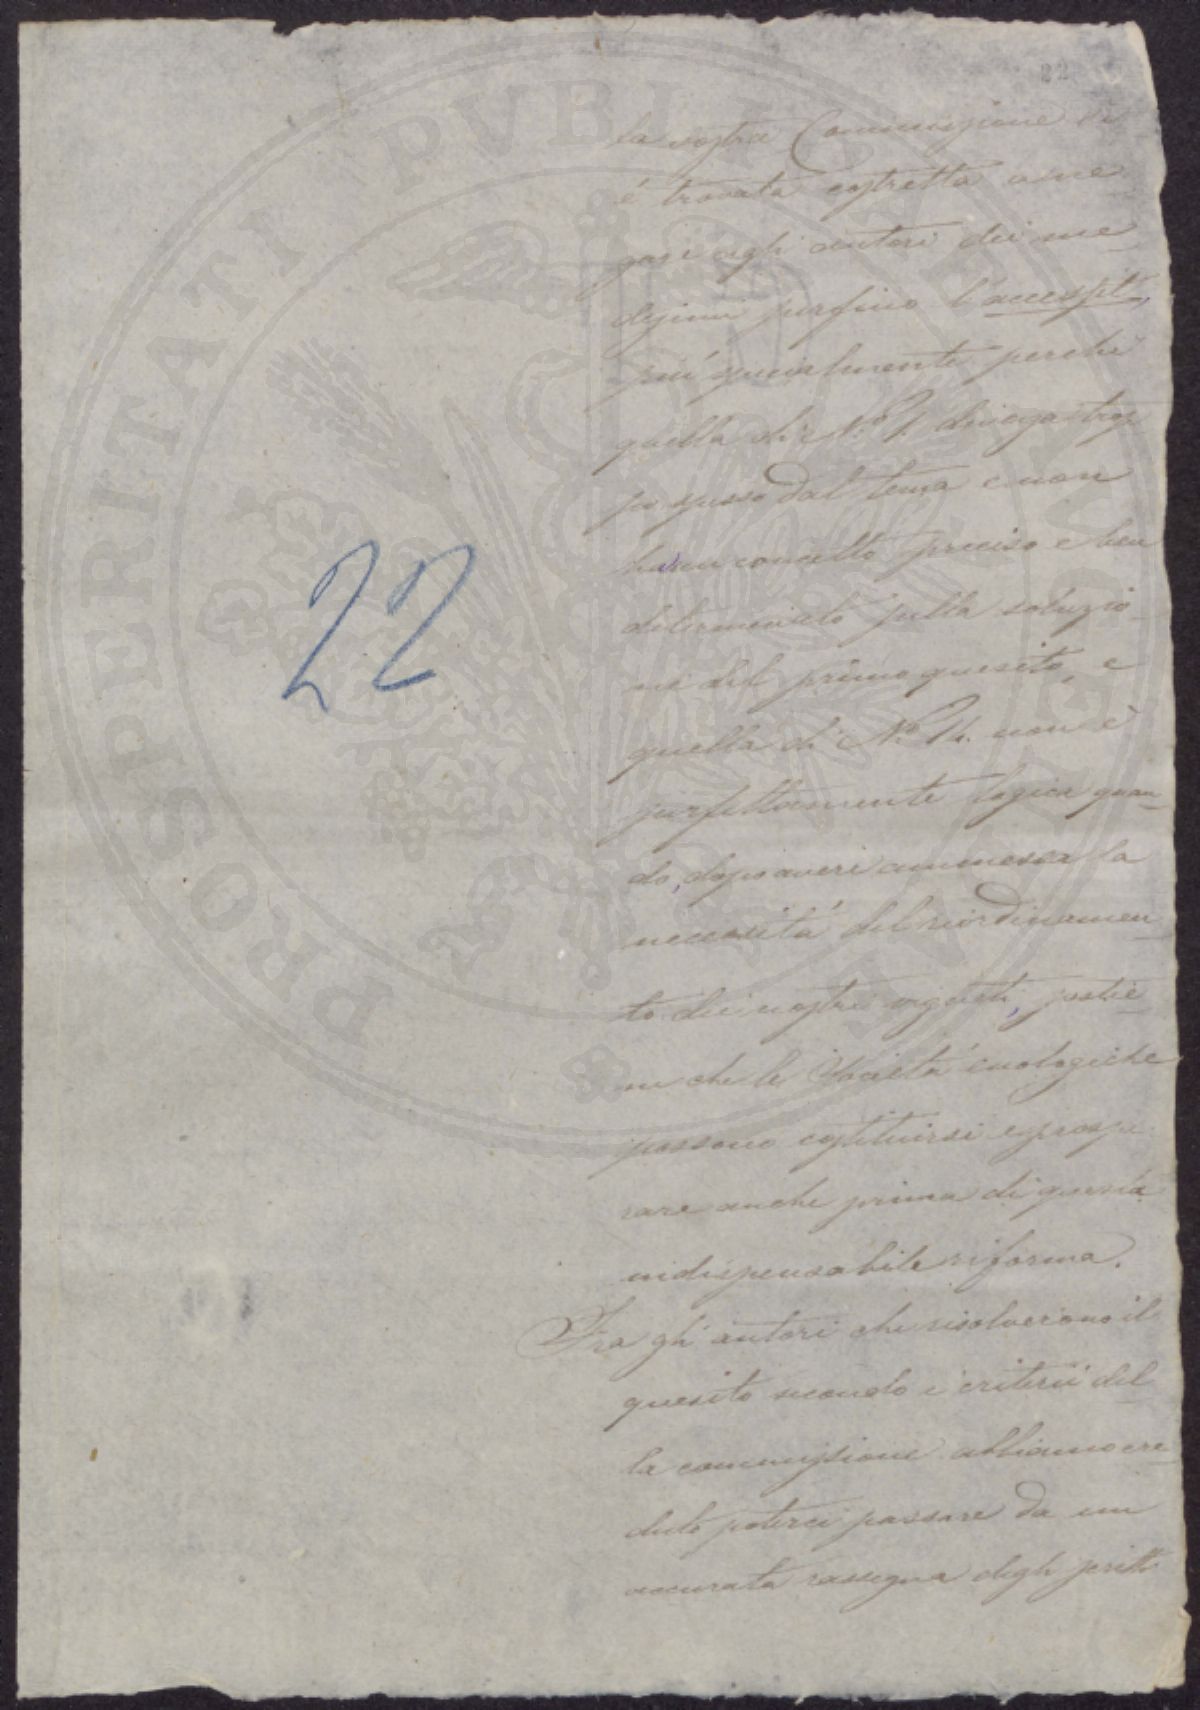 22
la vostra Commissione si
è trovata costretta a ne
gare agli autori dei me
desimi perfino l'accessit,
più specialmente perchè
quella di N.º 7. divaga trop
po spesso dal tema e non
ha un concetto preciso e ben
determinato sulla soluzio
ne del primo quesito, e
quella di N.º 14. non è
perfettamente logica quan
do, dopo avere ammessa la
necessità del riordinamen
to dei nostri vigneti, sostie
ne che le Società enologiche
possono costituirsi e prospe
rare anche prima di questa
indispensabile riforma.
Fra gli autori che risolverono il
quesito secondo i criterii del
la commissione abbiamo cre
duto poterci passare da un
accurata rassegna degli scritti
22
PROSPERITATI PVBLICAE AVGENDAE